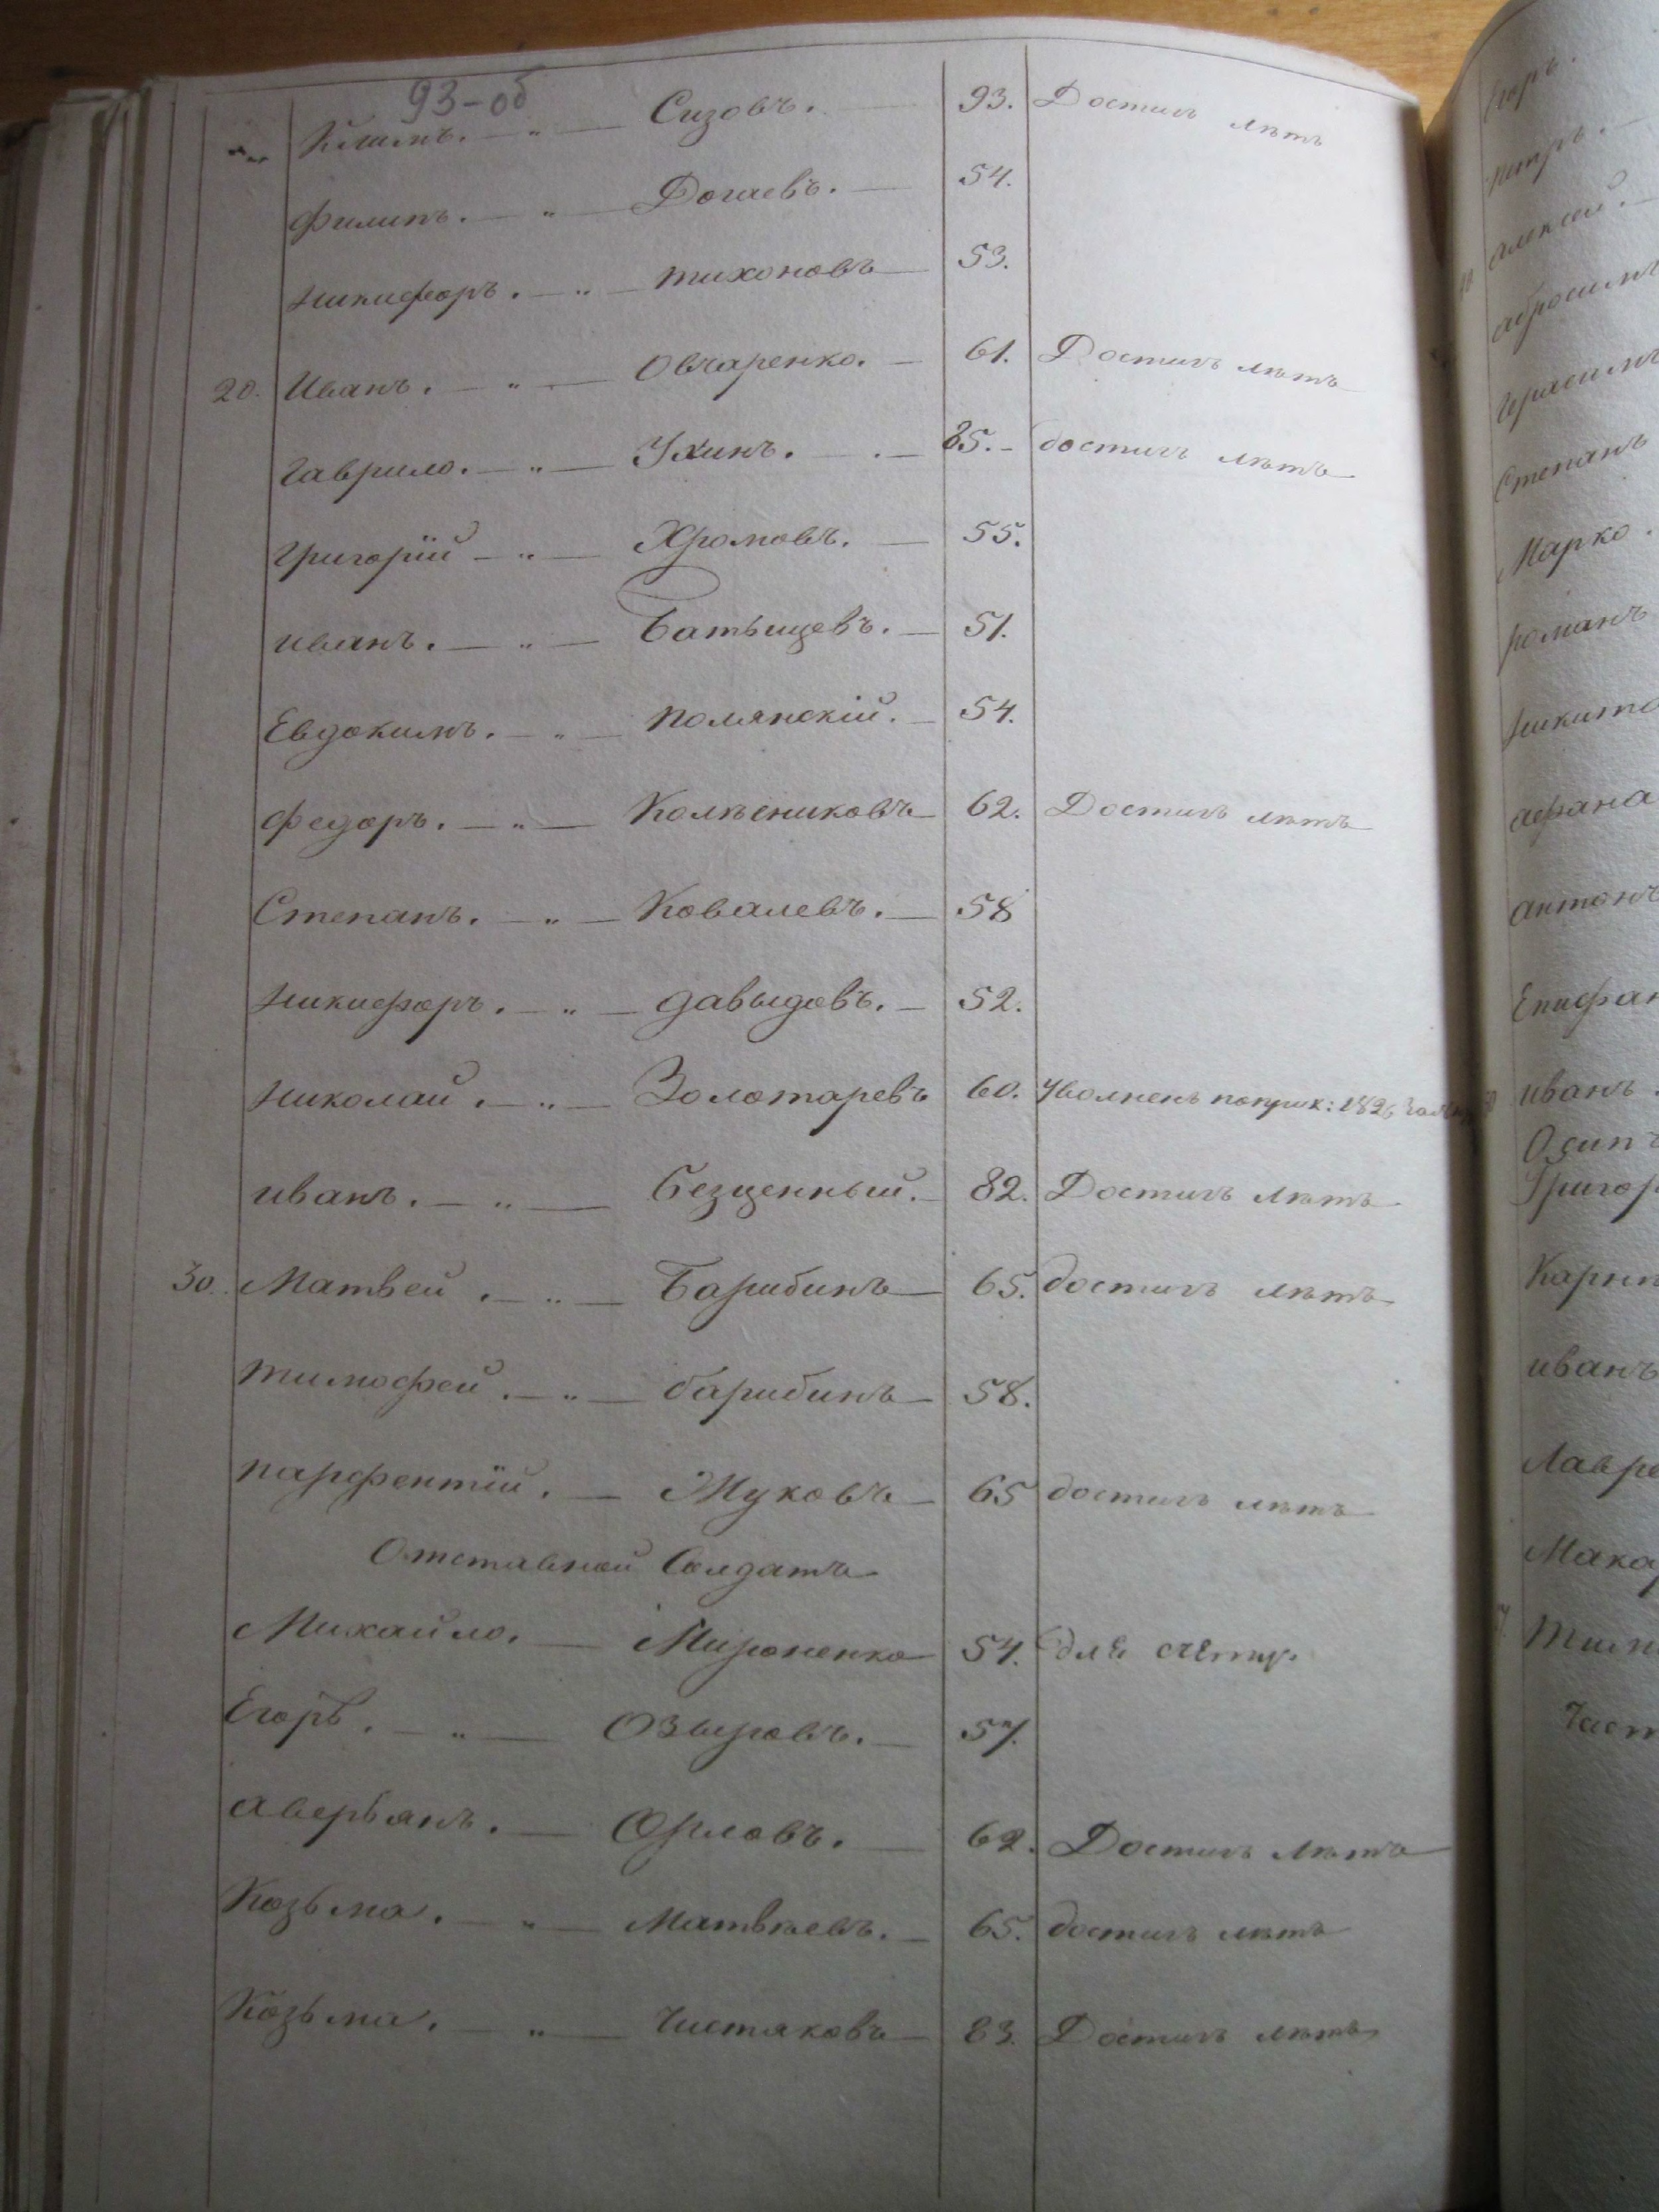 93-об
Климъ. — " — Сизовъ. — 93. Достигъ лѣтъ
Филипъ. — " — Догаевъ. — 54.
Никифоръ. — " — Тихоновъ — 53.
20. Иванъ. — " — Овчаренко. — 61. Достигъ лѣтъ
Гаврило. — " — Ухинъ. — 85. - достигъ лѣтъ
Григорій — " — Хромовъ. — 55.
иванъ. — " — Батыщевъ. — 51.
Евдокимъ. — " — Полянскій. — 54.
Федоръ. — " — Колѣсниковъ — 62. Достигъ лѣтъ
Степанъ. — " — Ковалевъ. — 58
Никифоръ. — " — давыдовъ. — 52.
Николай. — " — Золотаревъ 60. Уволненъ
иванъ. — " — безценный. — 82. Достигъ лѣтъ
30. Матвей. — " — Барибинъ — 65. достигъ лѣтъ
Тимофей. — " — барибинъ — 58.
Парфентій. — Жуковъ — 65 достигъ лѣтъ
Отставной Солдатъ
Михайло. — Мироненко 54. для счету
Егоръ. — " — Озыровъ. — 57.
аверьянъ. — Орловъ. — 62. Достигъ лѣтъ
Козьма. — " — Матвѣевъ. — 65. достигъ лѣтъ
Козьма. — " — Чистяковъ — 83. Достигъ лѣтъ
алексей.
Степанъ
Марко.
романъ
антонъ
иванъ.
Осипъ
иванъ